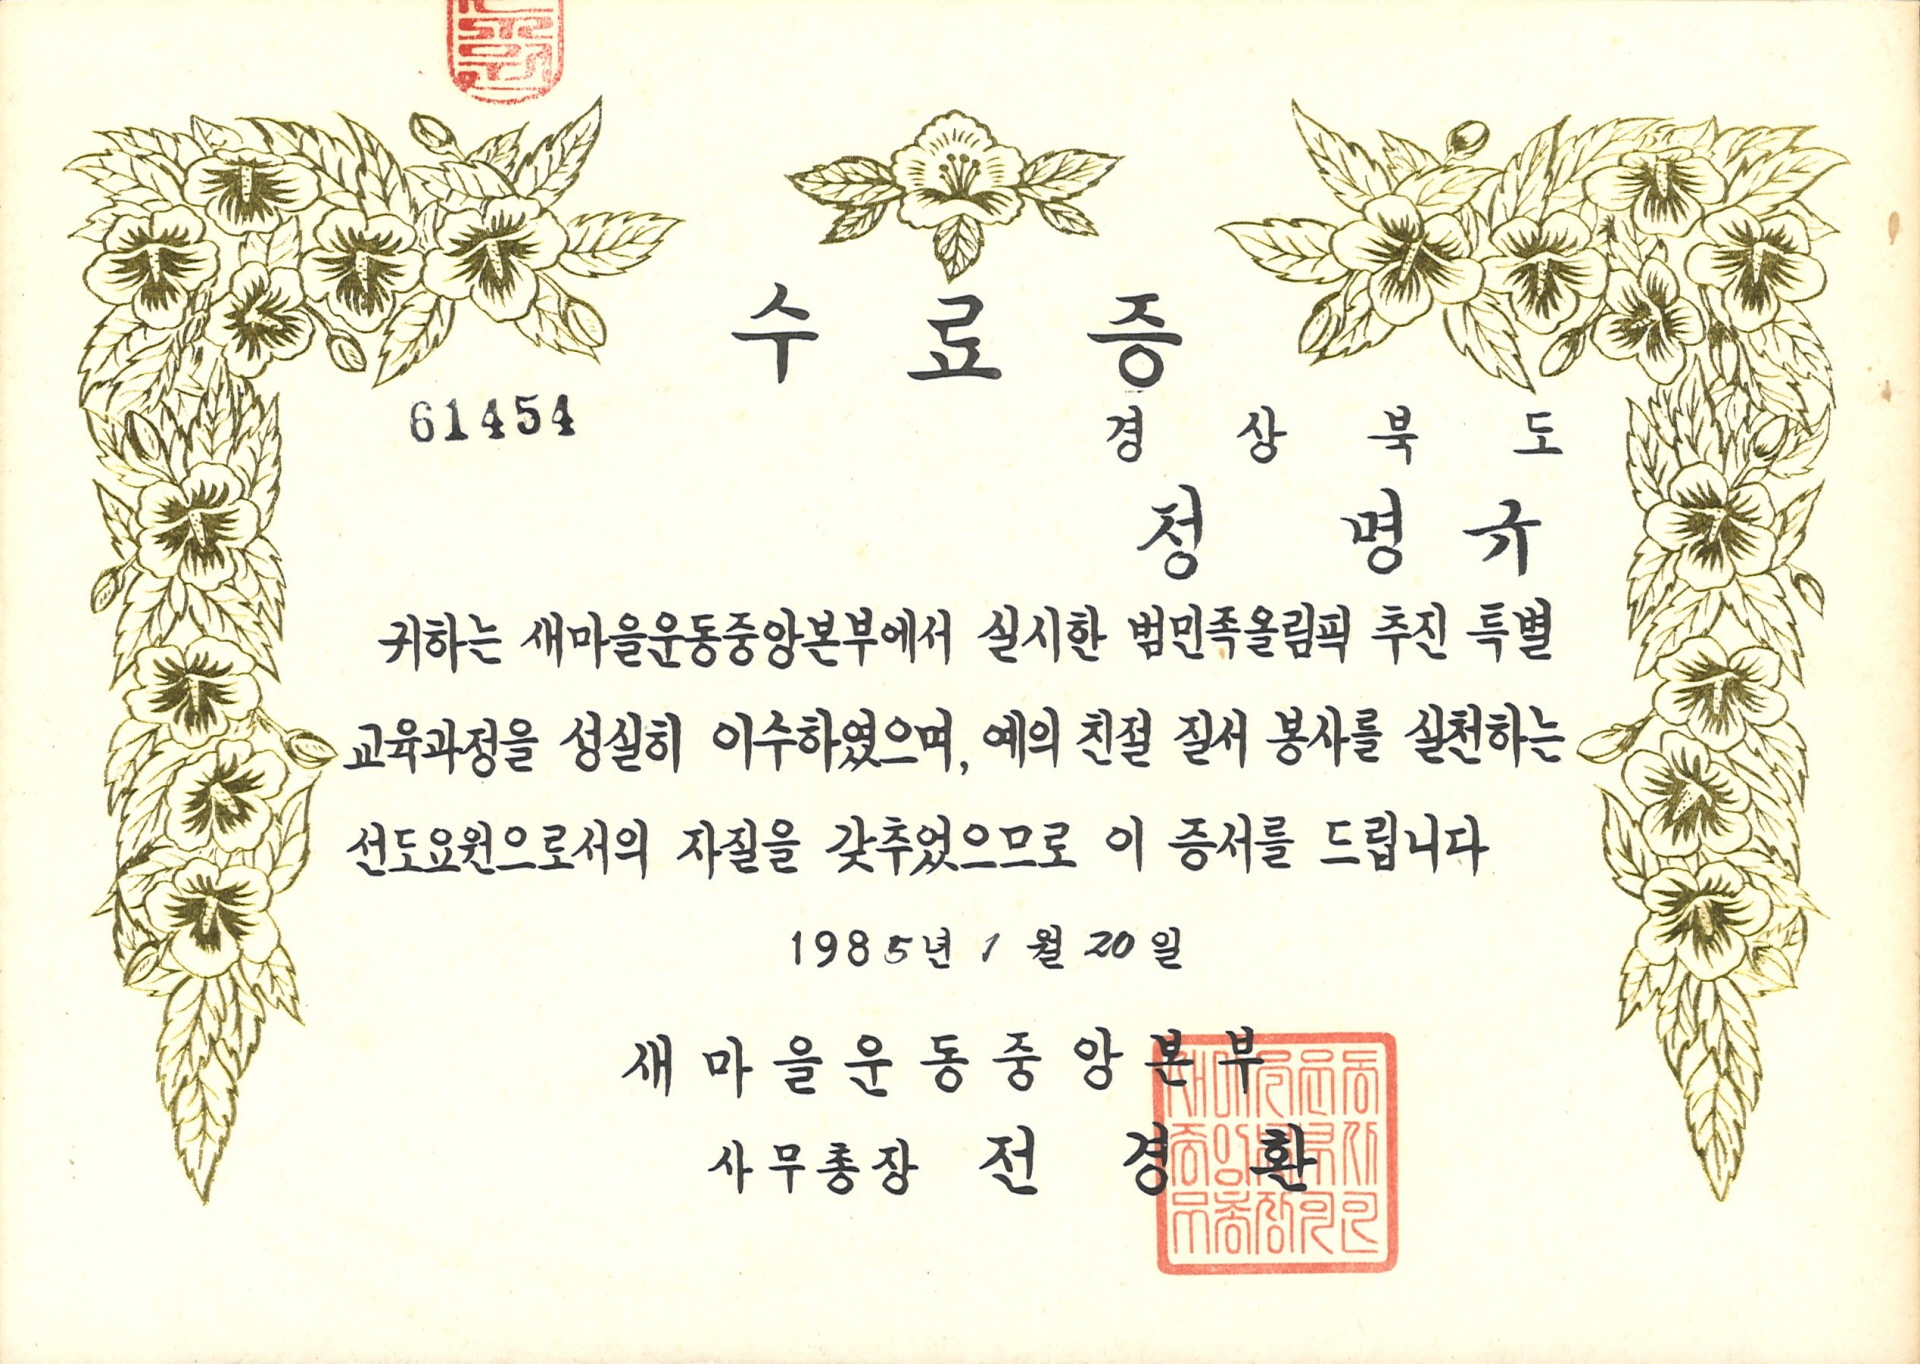 수료증
61454
경상북도
정명규
귀하는 새마을운동중앙본부에서 실시한 범민족올림픽 추진 특별
교육과정을 성실히 이수하였으며, 예의 친절 질서 봉사를 실천하는
선도요원으로서의 자질을 갖추었으므로 이 증서를 드립니다
1985년 1월 20일
새마을운동중앙본부
사무총장 전경환